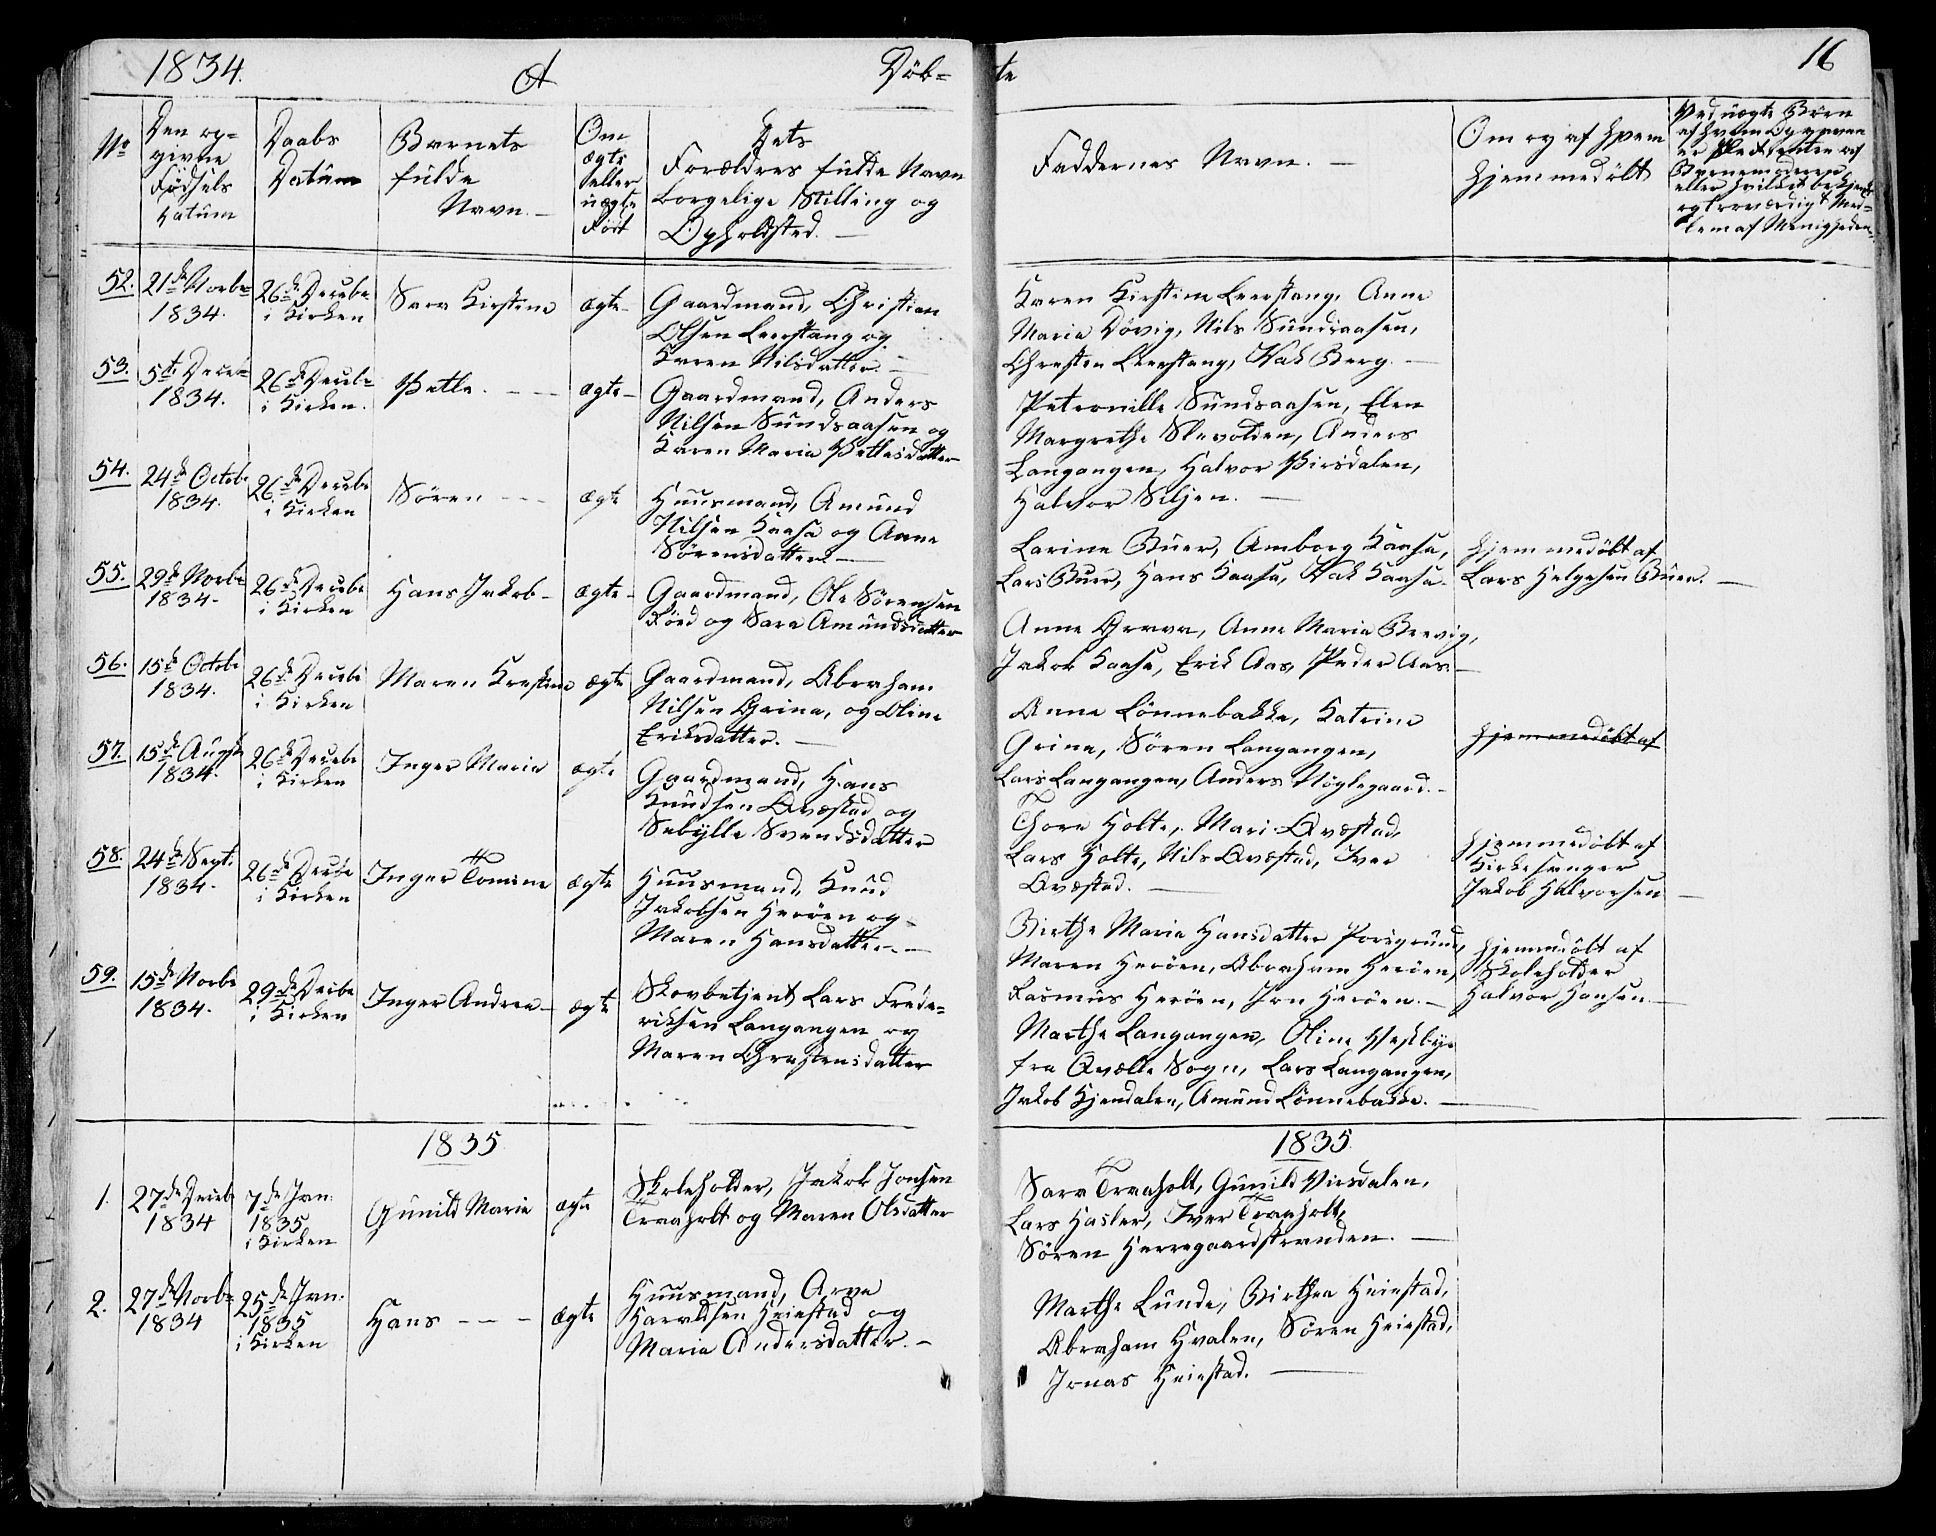 1834.
A
Döb-
te
16
No
Den op-
givne
Födsels
Datum
Daabs
Datum
Barnets
fulde
Navn. -
Om
ægte
eller
uægte
Född
Dets
Forældres fulde Navn
borgelige Stilling og
Opholdsted. -
Faddernes Navn. -
Om og af hvem
hjemmedöbt
Ved uægte Börn
af hvem Opgaven
er
Barnemoderen
eller hvilket bekjendt
og troværdigt Med-
lem af Menigheden.
52. 21de Novbr 1834. 26de Decebr i Kirken Sara Kirstine ægte -
Gaardmand, Christian
Olsen Leerstang og
Karen Nilsdatter. -
Karen Kirstine Leerstang, Anne
Maria Dövig, Nils Sundsaasen,
Chresten Leerstang, Isak Berg. -
53. 5te Decebr 1834. 26de Decebr i Kirken. Petter. - - ægte -
Gaardmand, Anders
Nilsen Sundsaasen og
Karen Maria Pettersdatter
Petronille Sundsaasen, Elen
Margrethe Slevolden, Anders
Langangen, Halvor Virsdalen,
Halvor Siljen. -
54. 24de Octobr 1834. 26de Decebr i Kirken Sören - - - ægte
Huusmand, Amund
Nilsen Kaasa og Anne
Sörensdatter -
Larine Buer, Amborg Kaasa,
Lars Buer, Hans Kaasa, Isak Kaasa.
hjemmedöbt af
Lars Helgesen Buer. -
55. 29de Novbr 1834 - 26de Decebr i Kirken Hans Jakob - ægte -
Gaardmand, Ole Sörensen
Röed og Sara Amundsdatter
Anne Grava, Anne Maria Brevig,
Jakob Kaasa, Erik Aas, Peder Aas -
56. 15de Octobr 1834. 26de Decebr i Kirken Maren Kirstine ægte
Gaardmand, Abraham
Nilsen Grina, og Oline
Eriksdatter. -
Anne Lönnebakke, Katrine
Grina, Sören Langangen,
Lars Langangen, Anders Nöglegaard. -
hjemmedöbt af
57. 15de August 1834. 26de Decebr i Kirken Inger Maria ægte
Gaardmand, Hans
Knudsen Ovæstad og
Sebylle Svendsdatter
Thore Holte, Mari Ovæstad,
Lars Holte, Nils Ovæstad, Iver
Ovæstad. -
hjemmedöbt af
Kirkesanger
Jakob Halvorsen -
58. 24de Sept. 1834. 26de Decebr i Kirken Inger Tomine ægte
Huusmand, Knud
Jakobsen Heröen og
Maren Hansdatter. -
Birthe Maria Hansdatter Porsgrund,
Maren Heröen, Abraham Heröen,
Rasmus Heröen, Jon Heröen. -
hjemmedöbt af
Skoleholder
Halvor Hansen. -
59. 15de Novbr 1834. 29de Decbr i Kirken Inger Andrea - ægte
Skovbetjent Lars Frede-
riksen Langangen og
Maren Chrestensdatter
Marthe Langangen, Oline Vestbye
fra Qvelle Sogn, Lars Langangen,
Jakob Kjendalen, Amund Lönnebakke. -
1835
1835.
1. 27de Decebr 1834 7de Jan: 1835 i Kirken Gunild Maria ægte
Skoleholder, Jakob Jonsen
Traaholt og Maren Olsdatter
Sara Traaholt, Gunild Virsdalen,
Lars Hasler, Iver Traaholt,
Sören Herregaardstranden. -
2. 27de Novbr. 1834 25de Jan: 1835 i Kirken Hans - - - ægte
Huusmand, Arve
Haraldsen Heiestad og
Maria Andersdatter. -
Marthe Lunde, Birthea Heiestad,
Abraham Hvalen, Sören Heiestad,
Jonas Heiestad. -